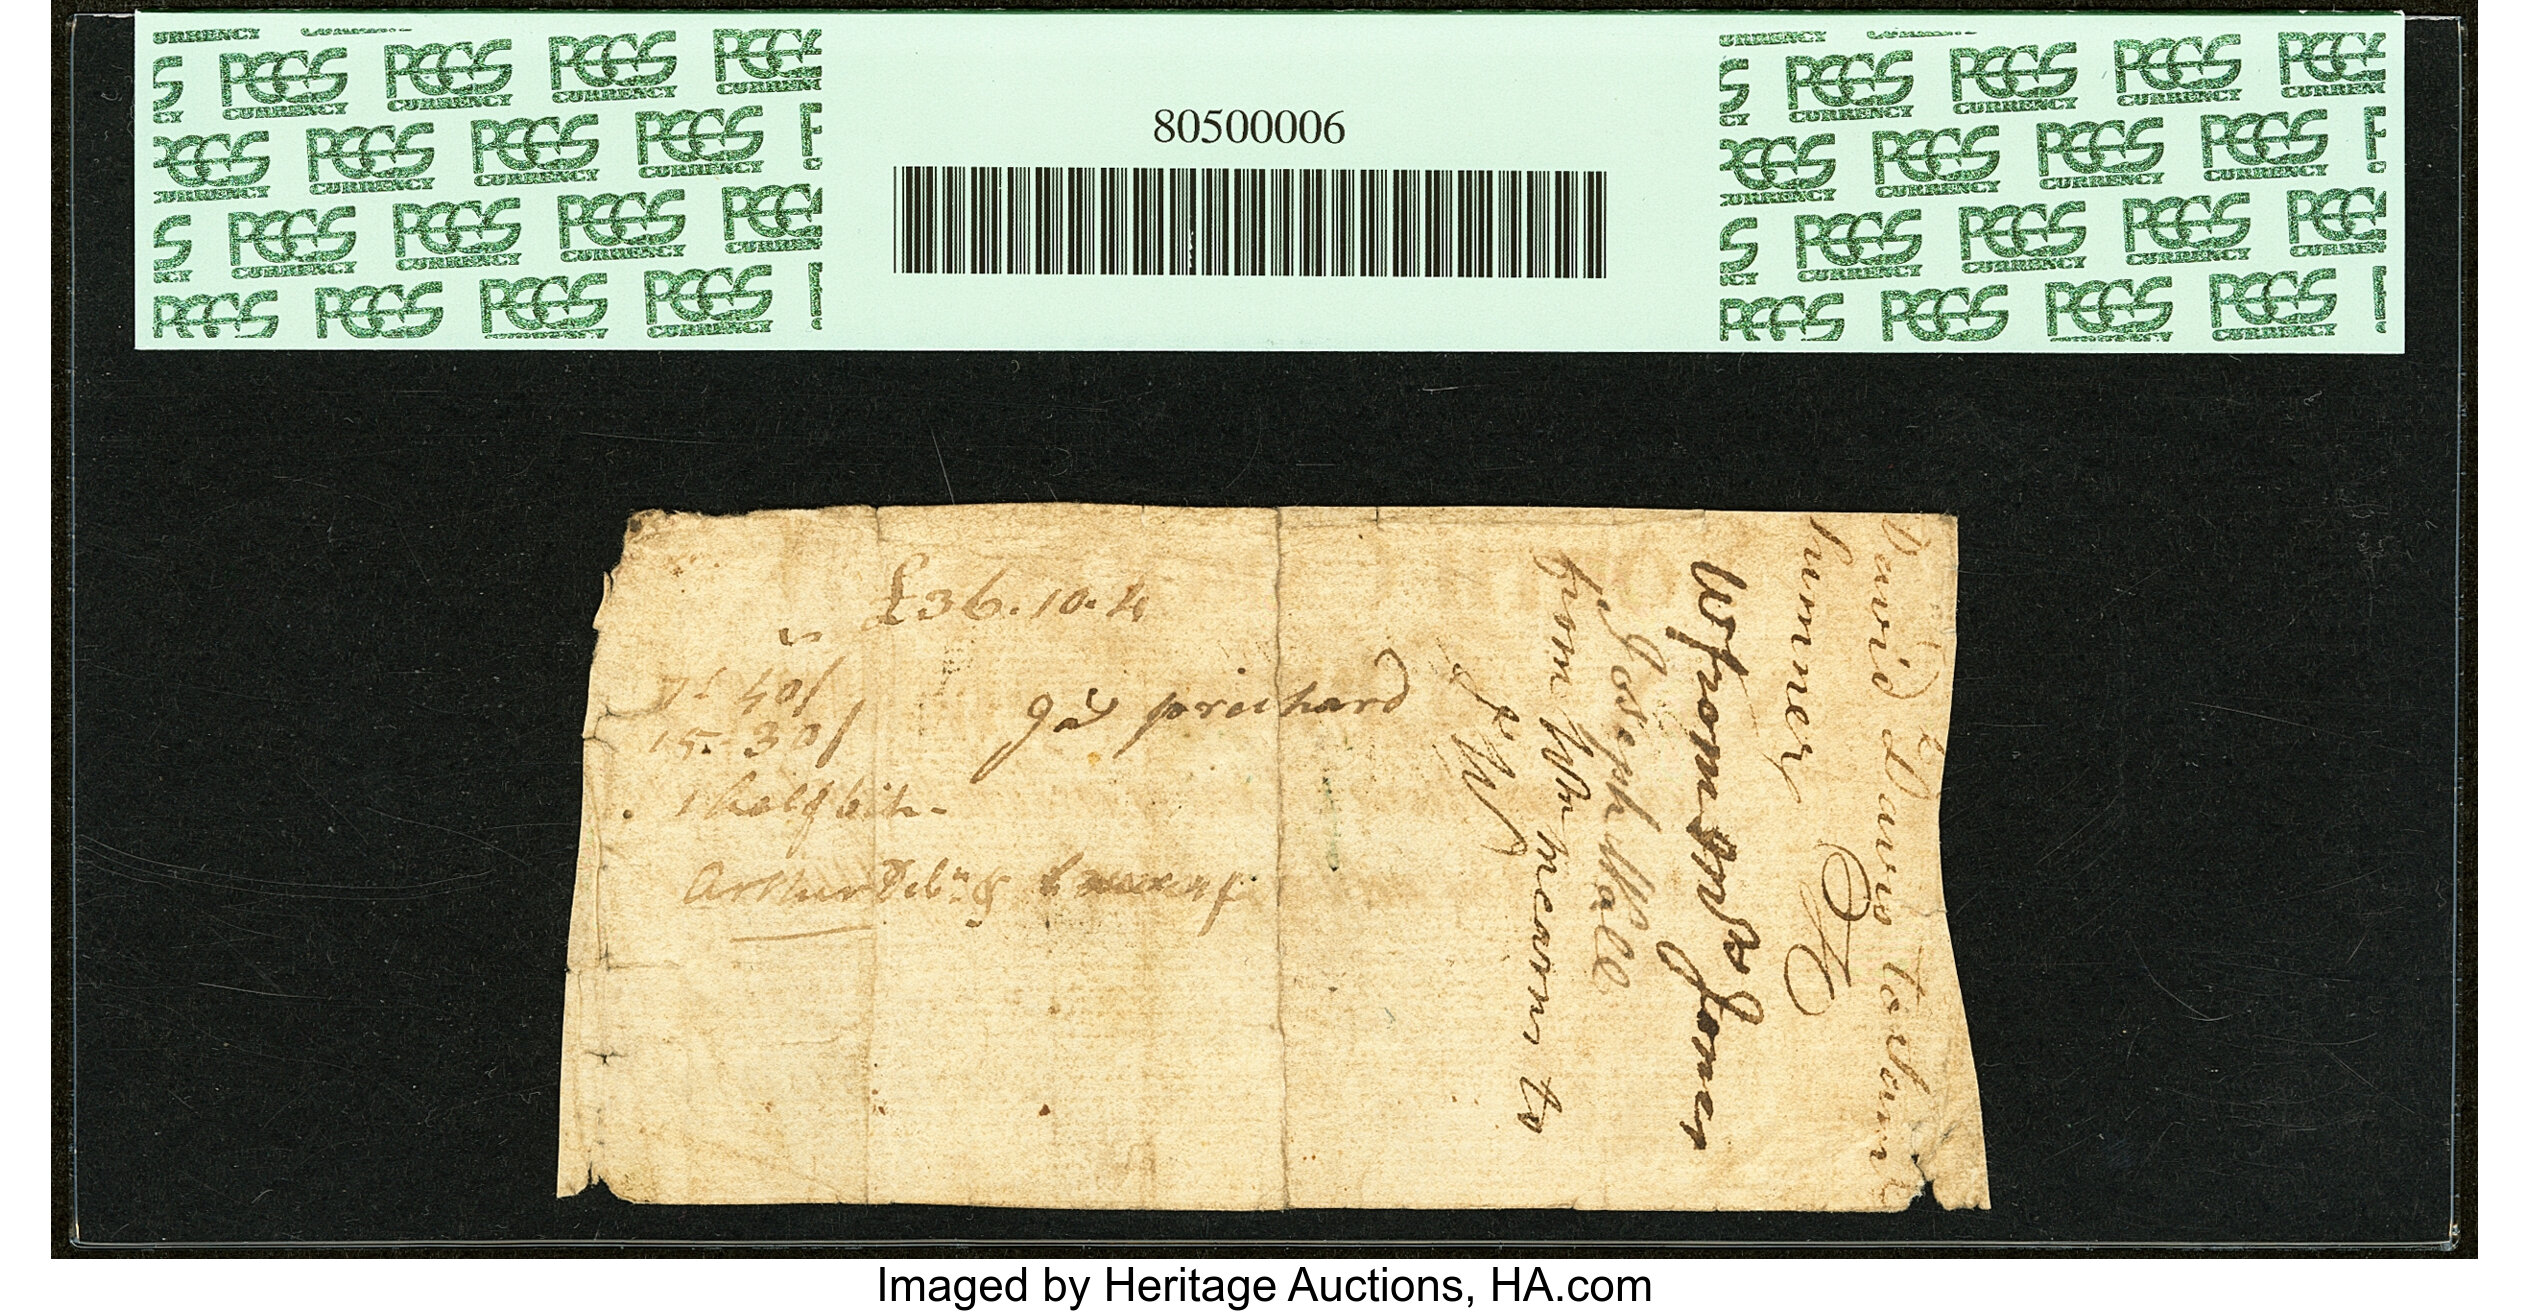 PCGS CURRENCY
80500006
£36.10.4
40/
15-30/
1 half bit-
Jas prichard
Arthur Debn &
David Davis to
Sumner
from
Jones
Joseph Wall
from Wm mearns to
J W
Imaged by Heritage Auctions, HA.com